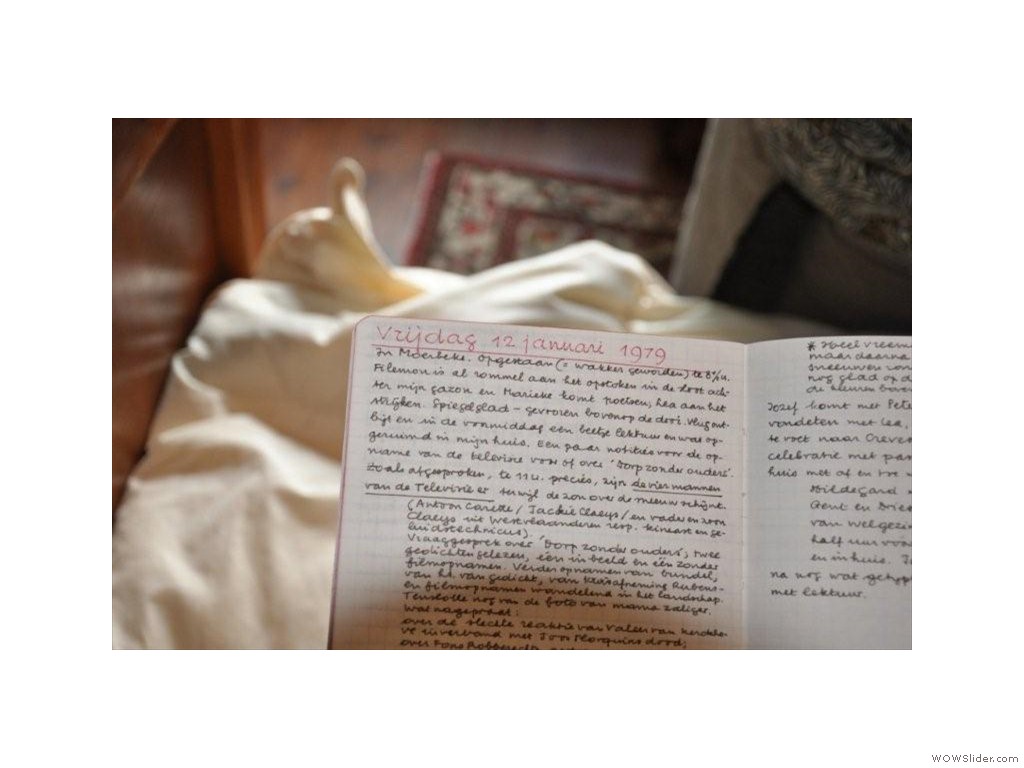 Vrijdag 12 januari 1979
In Moerbeke. Opgestaan (= wakker geworden) te 8¾u.
Filemon is al rommel aan het opstoken in de hort ach-
ter mijn gazon en Marieke komt poetsen, Lea aan het
strijken. Spiegelglad - gevroren bovenop de dooi. Vlug ont-
bijt en in de voormiddag een beetje lektuur en was op-
geruimd in mijn huis. Een paar notities voor de op-
name van de televisie voor of over 'Dorp zonder ouders'.
Zoals afgesproken, te 11 u. precies, zijn de vier mannen
van de Televisie er terwijl de zon over de sneeuw schijnt.
(Antoon Carette / Jackie Claeys / en vader en zoon
Claeys uit Westvlaanderen resp. kineast en ge-
luidstechnicus).
Vraaggesprek over 'Dorp zonder ouders', twee
gedichten gelezen, één in beeld en één zonder
filmopnamen. Verder opnamen van bundel,
van hs. van gedicht, van Kruisafneming Rubens-
en filmopnamen wandelend in het landschap.
Tenslotte nog van de foto van mama zaliger.
Wat nagepraat:
over de slechte reaktie van Valeer van Kerckho-
ve in verband met Joos Florquins dood;
over Fons
* Heel vreem
maar daarna
sneeuwen von
nog glad op d
de sleuren bov
Jozef komt met Pete
vondelen met Lea,
te voet naar Oreve
celebratie met par
huis met af en toe
Hildegard
Gent en Drie
van welgezin
half uur voo
en in huis. J
na nog wat getyp
met lektuur.
WOWSlider.com